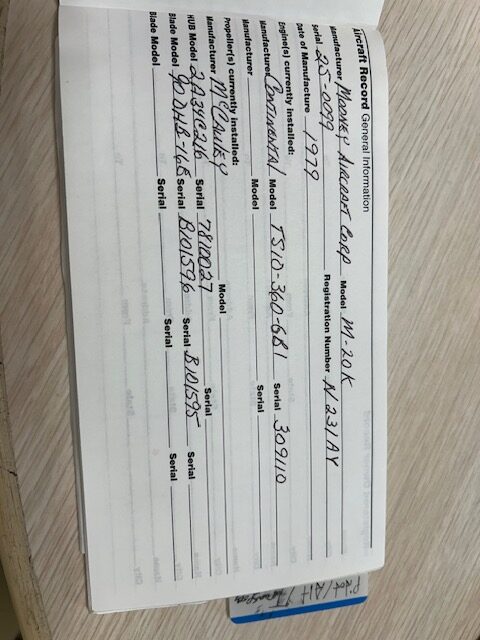 Aircraft Record General Information
Manufacturer MOONEY AIRCRAFT CORP Model M-20K
Serial 25-0099 Registration Number N231AY
Date of Manufacture 1979
Engine(s) currently installed:
Manufacturer CONTINENTAL Model TSIO-360-GB1 Serial 309110
Manufacturer Model Serial
Propeller(s) currently installed:
Manufacturer MCCAULEY Model
HUB Model 2A34C216 Serial 7810027 Serial
Blade Model 90DHB-16E Serial B101596 Serial B101595 Serial
Blade Model Serial Serial Serial